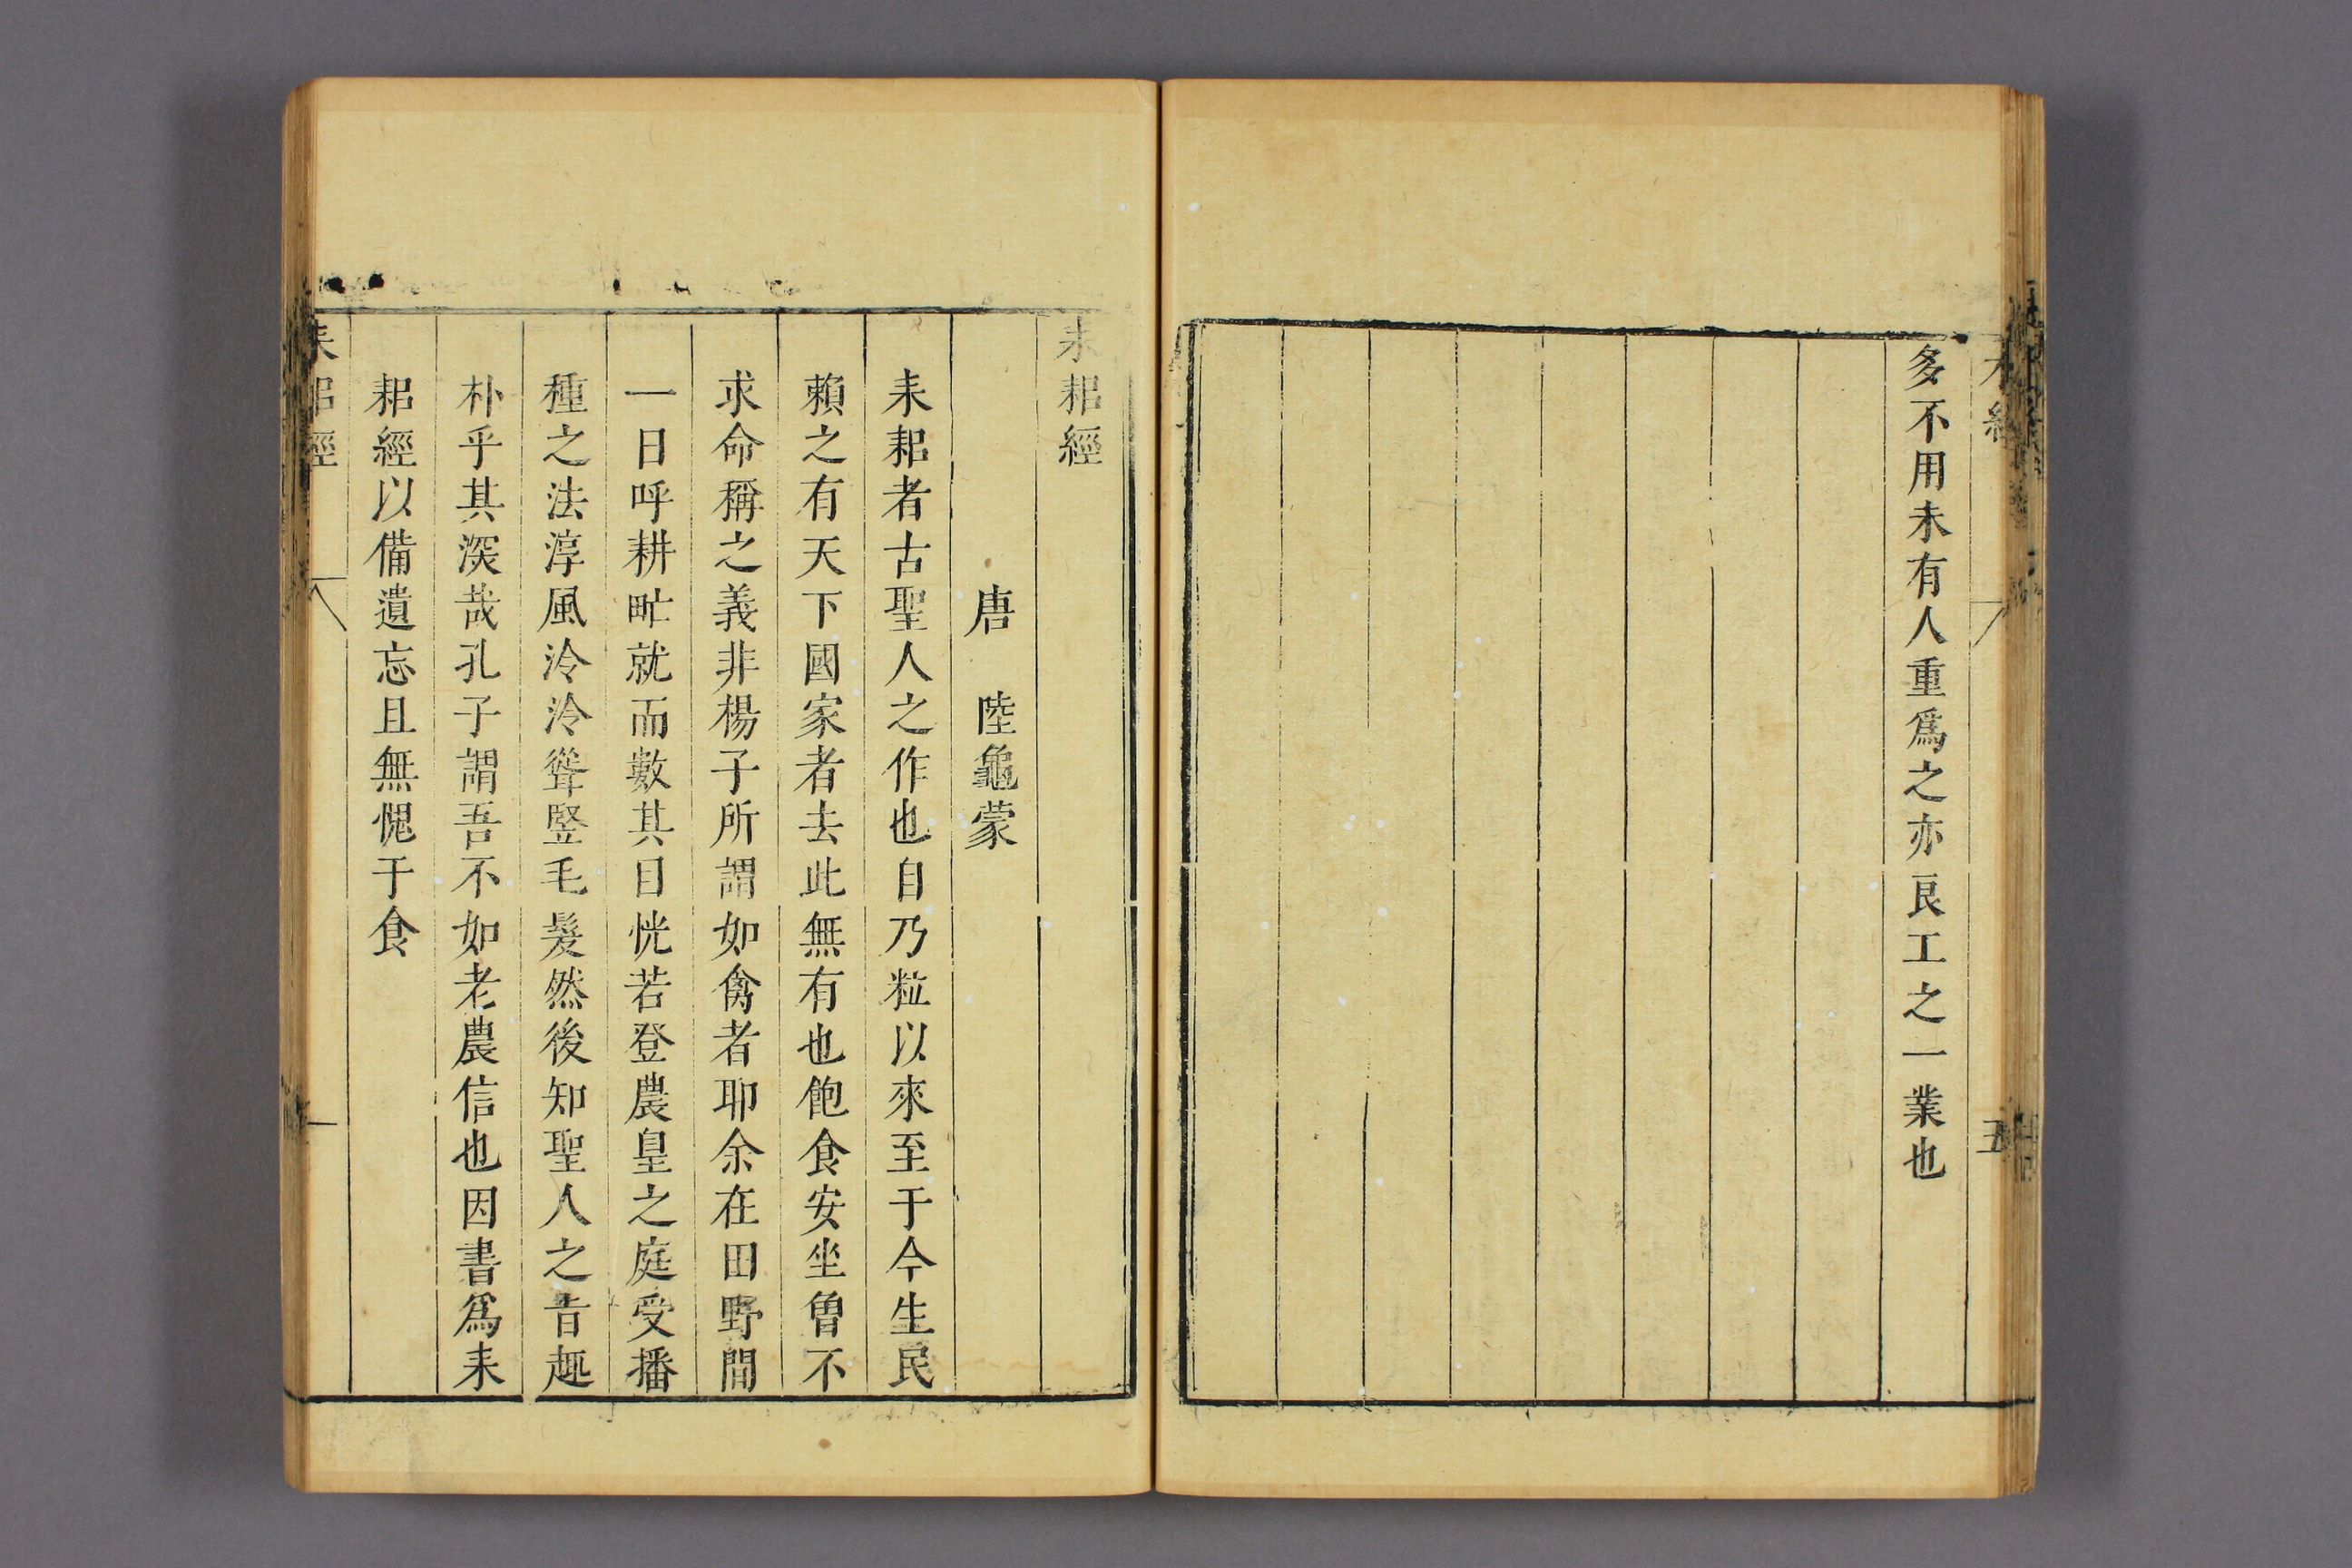 多不用未有人重爲之亦良工之一業也
五
耒耜經
唐 陸龜蒙
耒耜者古聖人之作也自乃粒以來至于今生民
賴之有天下國家者去此無有也飽食安坐曾不
求命稱之義非楊子所謂如禽者耶余在田野間
一日呼耕甿就而數其目恍若登農皇之庭受播
種之法淳風泠泠聳竪毛髮然後知聖人之旨趣
朴乎其深哉孔子謂吾不如老農信也因書爲耒
耜經以備遺忘且無愧于食
耒耜經